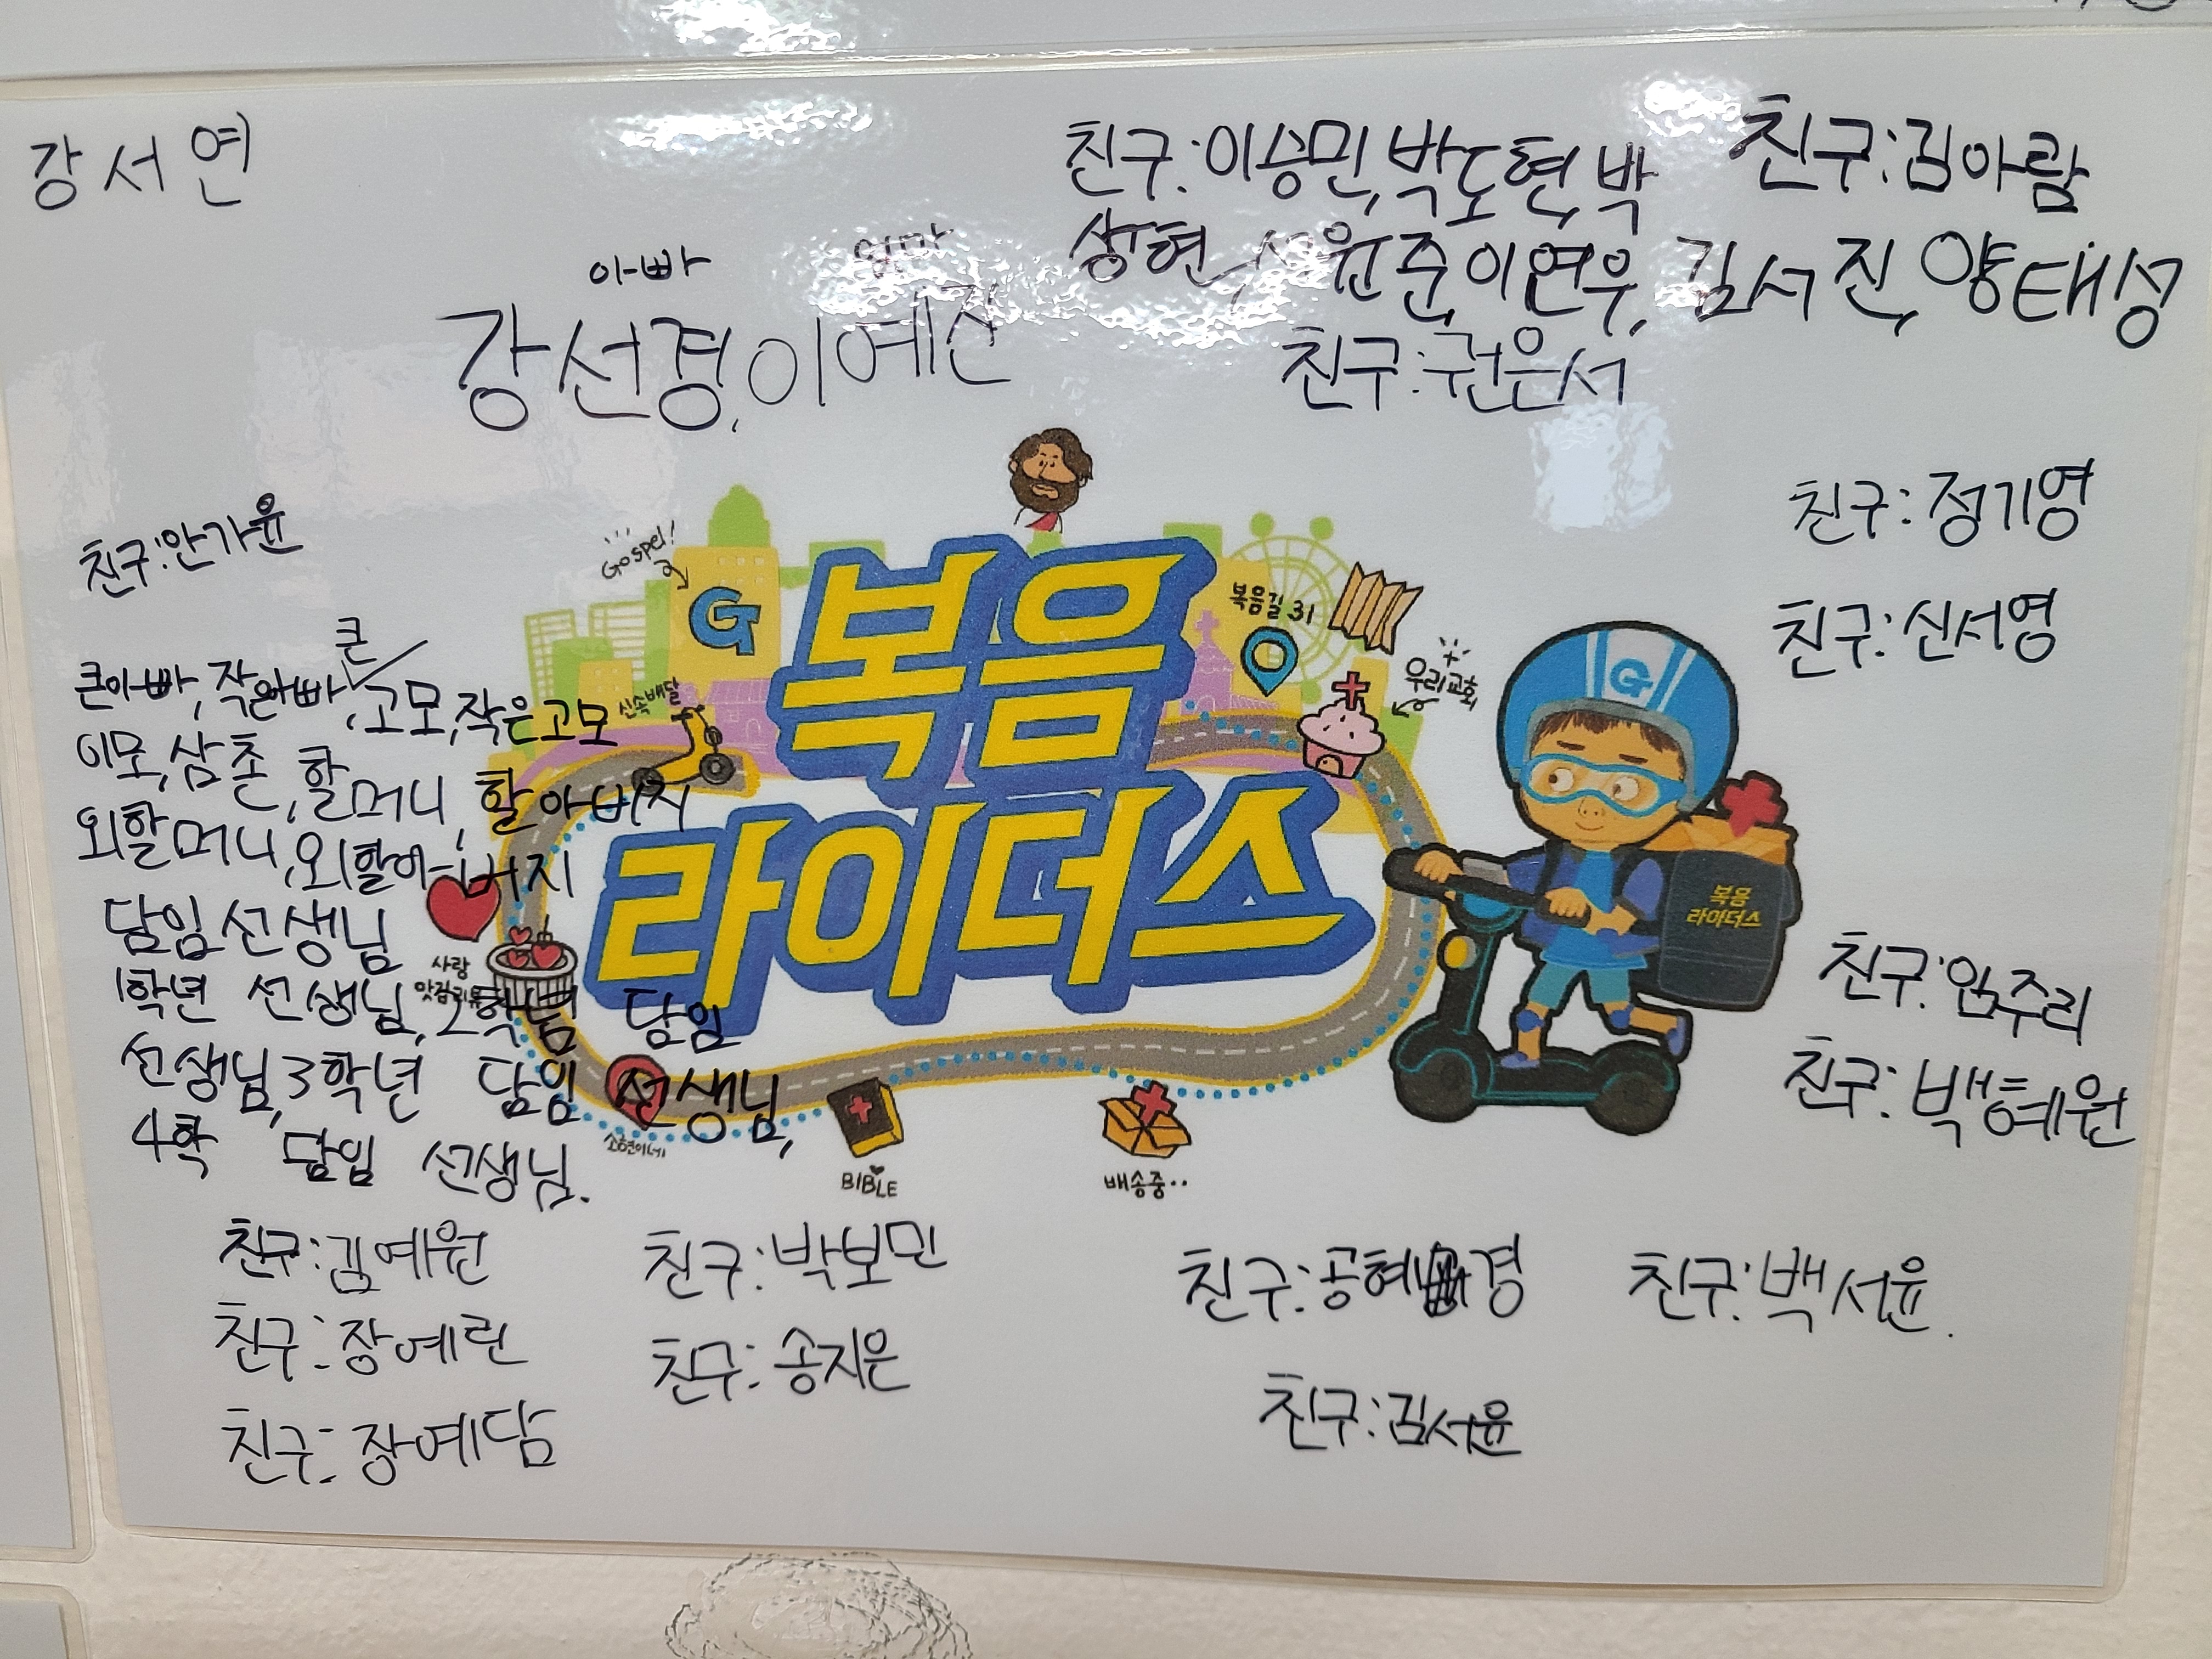 강서연
친구:이승민,박도현,박
친구:김아람
상현, 윤준,이연우, 김서진, 양태성
아빠
엄마
강선경,이예진
친구:권은서
친구:안가윤
친구:정기영
친구:신서영
Gospel!
G
복음
복음길 31
우리교회
G
큰
큰아빠,작은아빠,고모,작은고모
신속배달
이모,삼촌,할머니,할아버지
외할머니,외할아버지
라이더스
복음
라이더스
담임선생님
사랑
1학년 선생님,2학년 담임
선생님,3학년 담임 선생님,
4학 담임 선생님.
소현이네
BIBLE
배송중..
친구:임주리
친구:백혜원
친구:김예원
친구:박보민
친구:공혜경
친구:백서윤.
친구:장예린
친구:송지은
친구:김서윤
친구:장예담